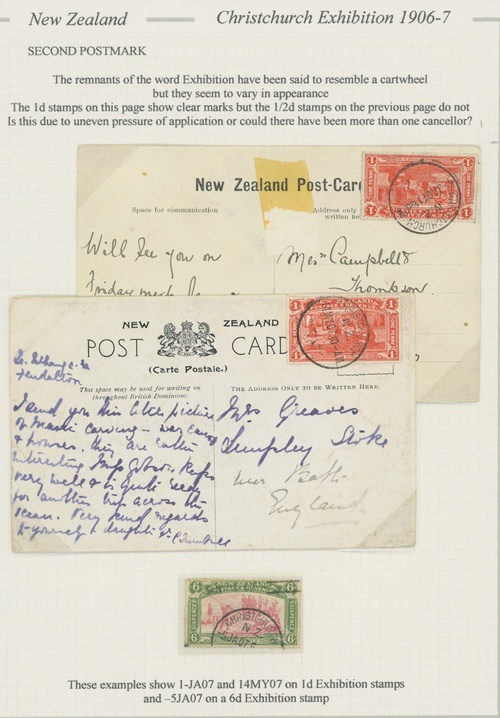 New Zealand
Christchurch Exhibition 1906-7
SECOND POSTMARK
The remnants of the word Exhibition have been said to resemble a cartwheel
but they seem to vary in appearance
The 1d stamps on this page show clear marks but the 1/2d stamps on the previous page do not
Is this due to uneven pressure of application or could there have been more than one cancellor?
New Zealand Post-Car
Space for communication
Address only
written here
Will See you on
Friday
Campbell &
Thompson
NEW ZEALAND
POST CARD
(Carte Postale.)
This space may be used for writing on
throughout British Dominions.
THE ADDRESS ONLY TO BE WRITTEN HERE.
Fendalton
I send you this little picture
of Maori carving
interesting
very well &
for another trip across the
ocean. Very kind regards
to yourself &
Mrs Greaves
Limpley Stoke
near Bath
England
NEW ZEALAND
POSTAGE & REVENUE
SIXPENCE
6 6
CHRISTCHUR
N Z
5JA07
These examples show 1-JA07 and 14MY07 on 1d Exhibition stamps
and –5JA07 on a 6d Exhibition stamp